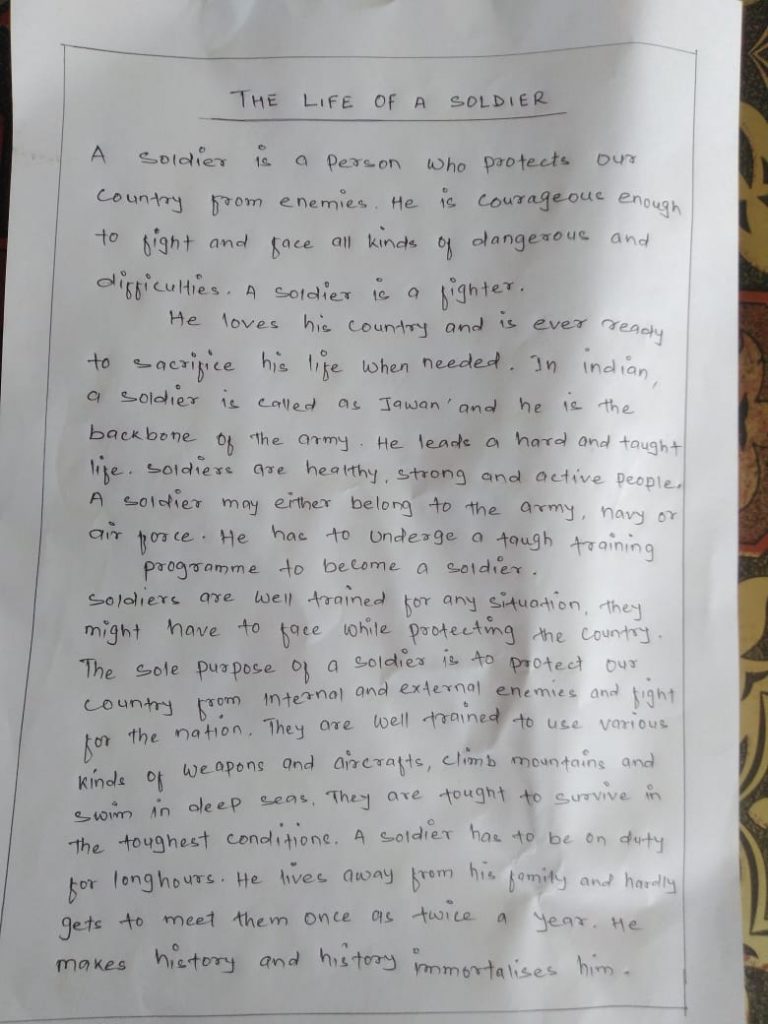 THE LIFE OF A SOLDIER
A soldier is a person who protects our
country from enemies. He is courageous enough
to fight and face all kinds of dangerous and
difficulties. A soldier is a fighter.
He loves his country and is ever ready
to sacrifice his life when needed. In indian,
a soldier is called as Jawan' and he is the
backbone of the army. He leads a hard and taught
life. soldiers are healthy, strong and active people.
A soldier may either belong to the army, navy or
air force. He has to underge a taugh training
programme to become a soldier.
soldiers are well trained for any situation, they
might have to face while protecting the country.
The sole purpose of a soldier is to protect our
country from internal and external enemies and fight
for the nation. They are well trained to use various
kinds of weapons and aircrafts, climb mountains and
swim in deep seas. They are tought to survive in
the toughest conditions. A soldier has to be on duty
for longhours. He lives away from his family and hardly
gets to meet them once as twice a year. He
makes history and history immortalises him.